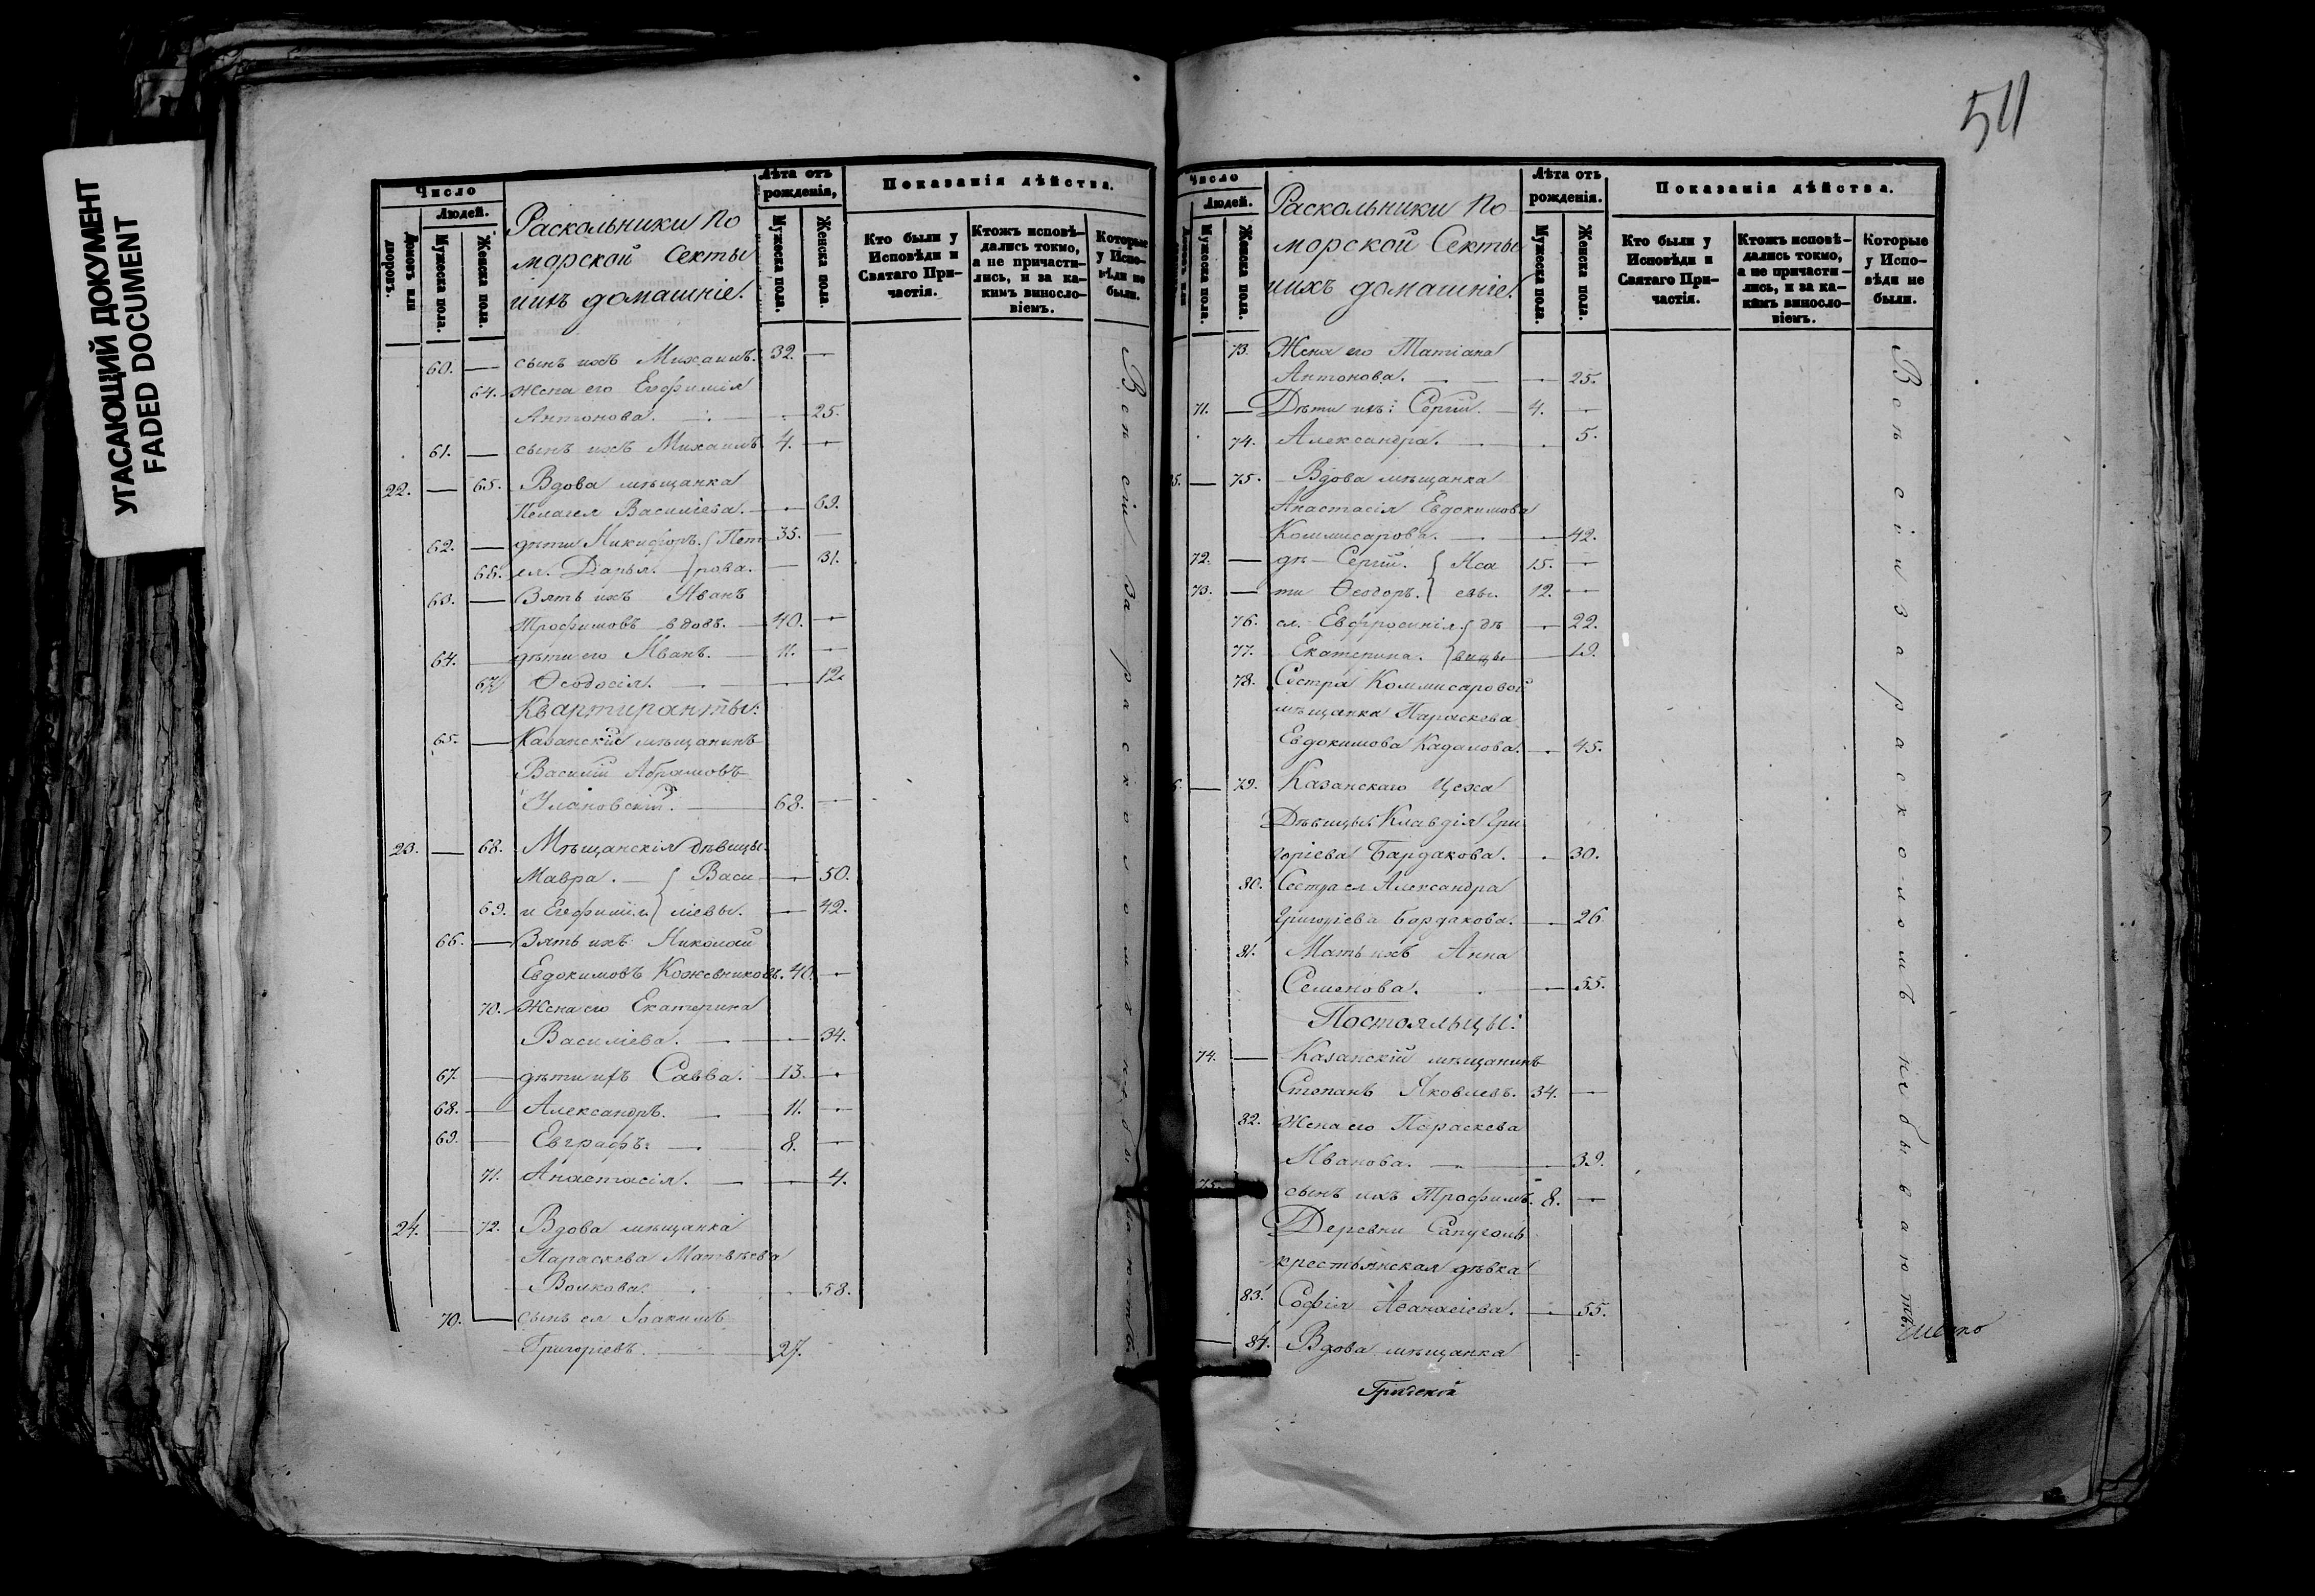 УГАСАЮЩИЙ ДОКУМЕНТ
FADED DOCUMENT
Число
Людей.
Домовъ или дворовъ.
Мужеска пола.
Женска пола.
Раскольники по
морской секты
и ихъ домашніе.
Лѣта отъ
рожденія,
Мужеска пола.
Женска пола.
Показанія дѣйства.
Кто были у
Исповѣди и
Святаго При-
частія.
Ктожъ исповѣ-
дались токмо,
а не причасти-
лись, и за ка-
кимъ виносло-
віемъ.
Которые
у Испо-
вѣди не
были.
60. — сынъ ихъ Михаилъ. 32. —
64. Жена его Евфимія
Антонова. — 25.
61. — сынъ ихъ Михаилъ 4. —
22. — 65. Вдова мѣщанка
Пелагея Василіева. — 69.
62. — дѣти Никифоръ. { Пет 35. —
66. ея. Дарья. } рова. — 31.
63. — Зять ихъ Иванъ
Трофимовъ вдовъ. — 40. —
64. — дѣти его Иванъ. — 11. —
67. Ѳеодосія. — 12.
Квартиранты:
65. — Казанскій мѣщанинъ
Василій Абрамовъ
Улановскій. — 68. —
23. — 68. Мѣщанскія дѣвицы
Мавра. — { Васи — 50.
69. и Евфимія } ліевы. — 42.
66. — Зять ихъ Николай
Евдокимовъ Кожевниковъ. 40. —
70. Жена его Екатерина
Василіева. — 34.
67. — дѣти ихъ Савва. — 13. —
68. — Александръ. — 11. —
69. — Евграфъ. — 8. —
71. Анастасія. — 4.
24. — 72. Вдова мѣщанка
Параскева Матвѣева
Волкова. 58.
70. — сынъ ея Іоакимъ
Григоріевъ. — 27.
Всѣ сіи за расколомъ не бываютъ.
511
Число
Людей.
Мужеска пола.
Женска пола.
Раскольники по-
морской Секты
и ихъ домашніе.
Лѣта отъ
рожденія.
Мужеска пола.
Женска пола.
Показанія дѣйства.
Кто были у
Исповѣди и
Святаго При-
частія.
Ктожъ исповѣ-
дались токмо,
а не причасти-
лись, и за ка-
кимъ виносло-
віемъ.
Которые
у Испо-
вѣди не
были.
73. Жена его Татіана
Антонова. — 25.
71. — Дѣти ихъ: Сергій. — 4. —
74. Александра. — 5.
25. — 75. Вдова мѣщанка
Анастасія Евдокимова
Коммисарова. — 42.
72. — дѣ — Сергій. { Иса 15. —
73. — ти Ѳеодоръ. } евы. 12. —
76. ея. Евфросинія { дѣ — 22.
77. Екатерина. } вицы — 19.
78. Сестра Коммисаровой
мѣщанка Параскева
Евдокимова Кадалова. — 45.
— 79. Казанскаго Цеха
Дѣвицы: Клавдія Гри
горіева Бардакова. — 30.
80. Сестра ея Александра
Григоріева Бордакова. — 26.
81. Мать ихъ Анна
Семенова. — 55.
Постояльцы:
74. — Казанскій мѣщанинъ
Степанъ Яковлевъ. 34. —
82. Жена его Параскева
Иванова. — 39.
75. сынъ ихъ Трофимъ. 8. —
Деревни Сапуголь
крестьянская дѣвка
83. Софія Аѳанасіева. — 55.
— 84. Вдова мѣщанка
Всѣ сіи за расколомъ не бываютъ.